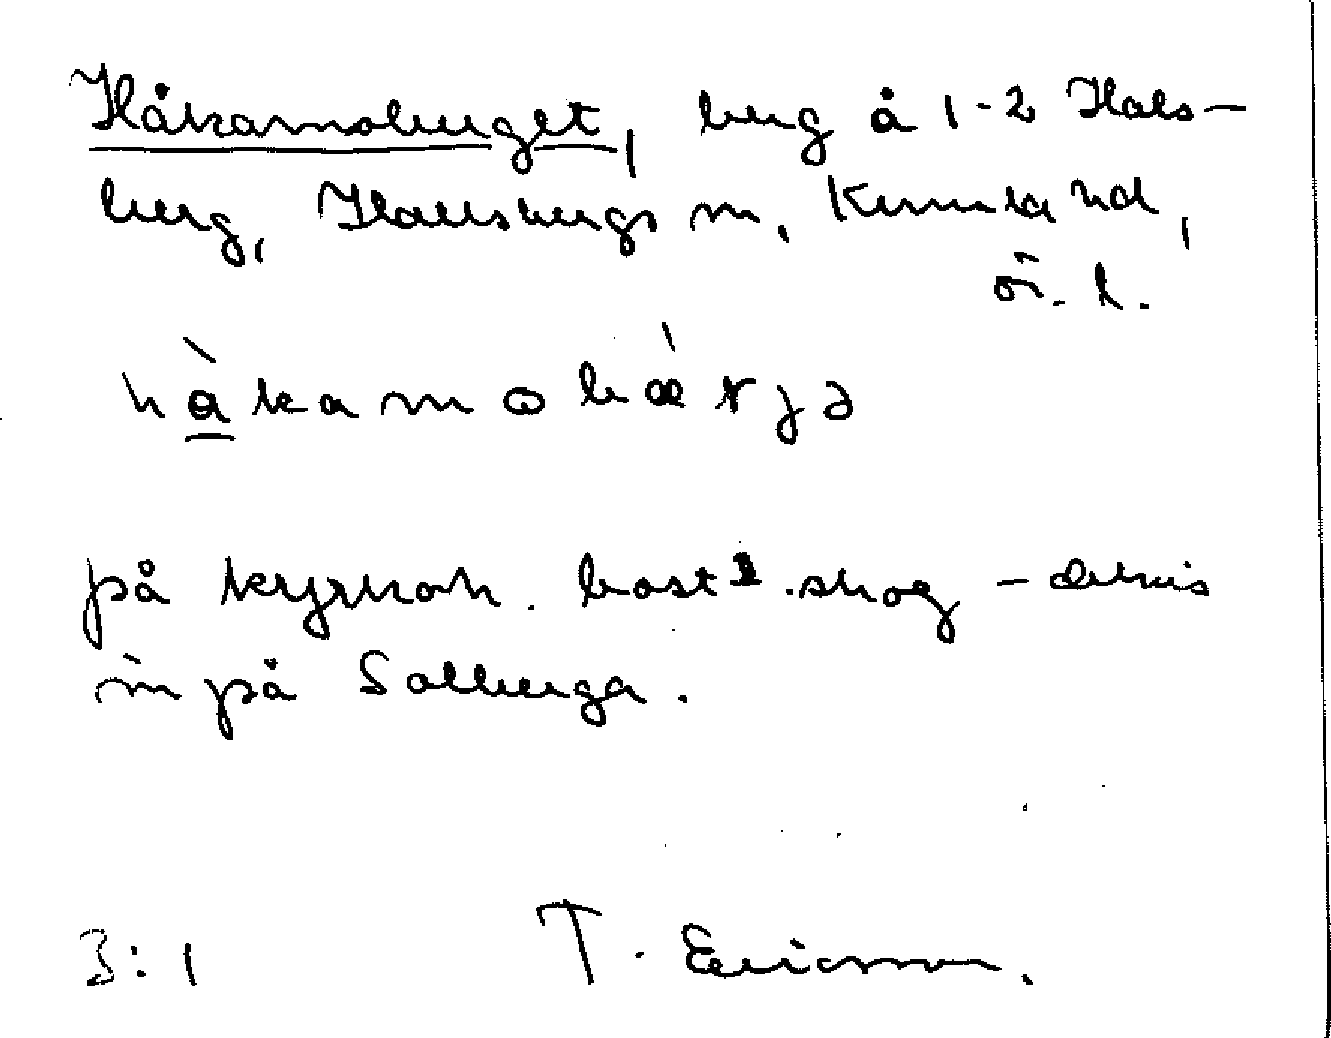 Håkamoberget, berg å 1-2 Hals-
berg, Hallsbergs sn, Kumla hd,
ör. l.
hàkamobæ̀rjə
på kyrkoh. bost. skog – delvis
in på Solberga.
3:1 T. Ericsson.